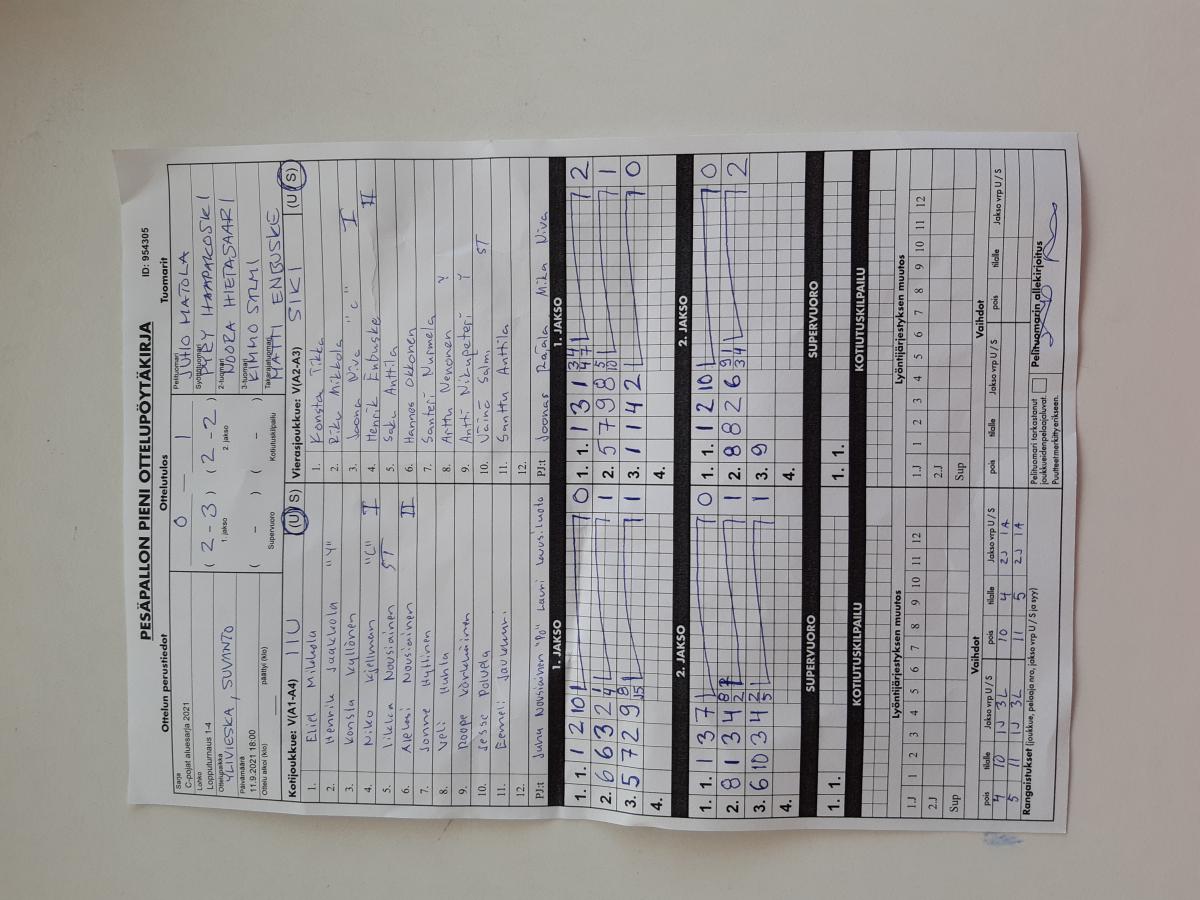 PESÄPALLON PIENI OTTELUPÖYTÄKIRJA
ID: 954305
Ottelun perustiedot
Ottelutulos
Tuomarit
Sarja
C-pojat aluesarja 2021
Lohko
Lopputurnaus 1-4
Ottelupaikka
YLIVIESKA, SUVANTO
Päivämäärä
11.9.2021 18:00
Ottelu alkoi (klo) päättyi (klo)
0 1
( 2 - 3 ) ( 2 - 2 )
1. jakso 2. jakso
( - ) ( - )
Supervuoro Kotiutuskilpailu
Pelituomari
JUHO MATOLA
Syöttötuomari
PYRY HAAPAKOSKI
2-tuomari
NOORA HIETASAARI
3-tuomari
KIMMO SARMI
Takarajatuomari
MATTI ENBUSKE
Kotijoukkue: V(A1-A4) (U/S)
1. Eliel Mikkola
2. Henrik Jaakkola "Y"
3. Konsta Kyllönen
4. Niko Kjellman "C" I
5. Nousiainen ST
6. Aleksi Nousiainen II
7. Jonne Hyttinen
8. Veli Huhta
9. Roope
10. Jesse Poluela
11. Eemeli
12.
PJ:t Juha Nousiainen "Po" Lauri
Vierasjoukkue: V(A2-A3) SIKI (U/S)
1. Konsta Tikka
2. Riku Mikkola
3. Joona Niva "C" I
4. Henrik Enbuske II
5. Saku Anttila
6. Hannes Okkonen
7. Santeri Nurmela
8. Arttu Nenonen Y
9. Antti Nikupeteri Y
10. Väinö Salmi ST
11. Santtu Anttila
12.
PJ:t Joonas Rajala Mika Niva
1. JAKSO
1. 1. 1 2 10 0
2. 6 6 3 2 1
3. 5 7 2 9 1
4.
1. JAKSO
1. 1. 1 3 1 2
2. 5 7 9 8 1
3. 1 1 4 2 0
4.
2. JAKSO
1. 1. 1 3 7 0
2. 8 1 3 4 1
3. 6 10 3 4 1
4.
2. JAKSO
1. 1. 1 2 10 0
2. 8 8 2 6 2
3. 9
4.
SUPERVUORO
1. 1.
SUPERVUORO
1. 1.
KOTIUTUSKILPAILU
KOTIUTUSKILPAILU
Lyöntijärjestyksen muutos
1.J 1 2 3 4 5 6 7 8 9 10 11 12
2.J
Sup
Lyöntijärjestyksen muutos
1.J 1 2 3 4 5 6 7 8 9 10 11 12
2.J
Sup
Vaihdot
pois tilalle Jakso vrp U/S pois tilalle Jakso vrp U/S
4 10 1J 3L 10 4 2J 1A
5 11 1J 3L 11 5 2J 1A
Vaihdot
pois tilalle Jakso vrp U/S pois tilalle Jakso vrp U/S
Rangaistukset (joukkue, pelaaja nro, jakso vrp U/S ja syy)
Pelituomari tarkastanut
joukkueiden pelaajaluvat.
Puutteet merkitty erikseen.
Pelituomarin allekirjoitus